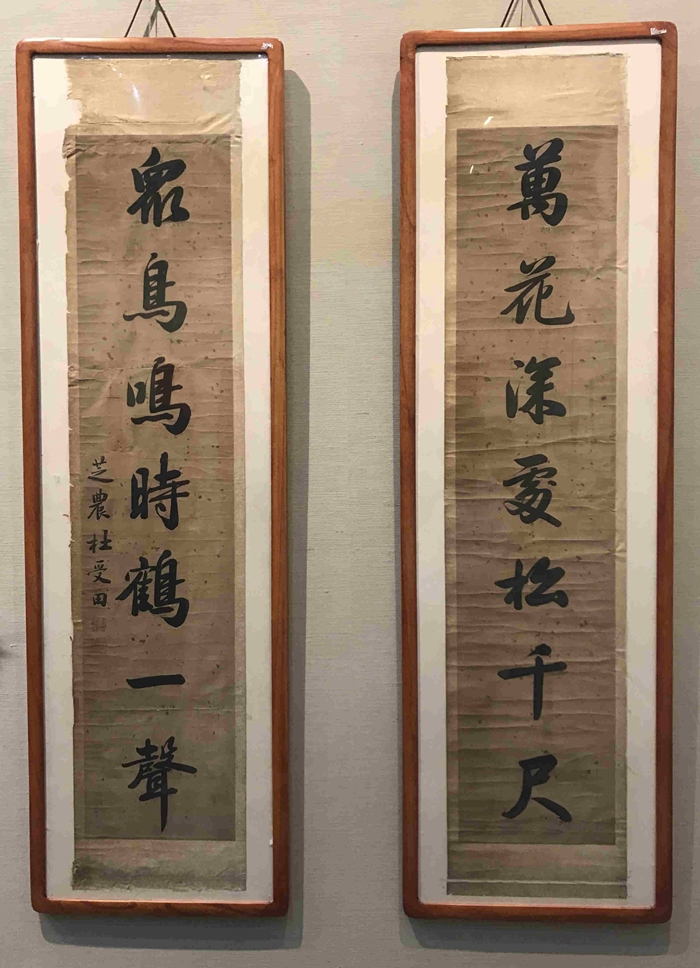 萬花深處松千尺
衆鳥鳴時鶴一聲
芝農杜受田